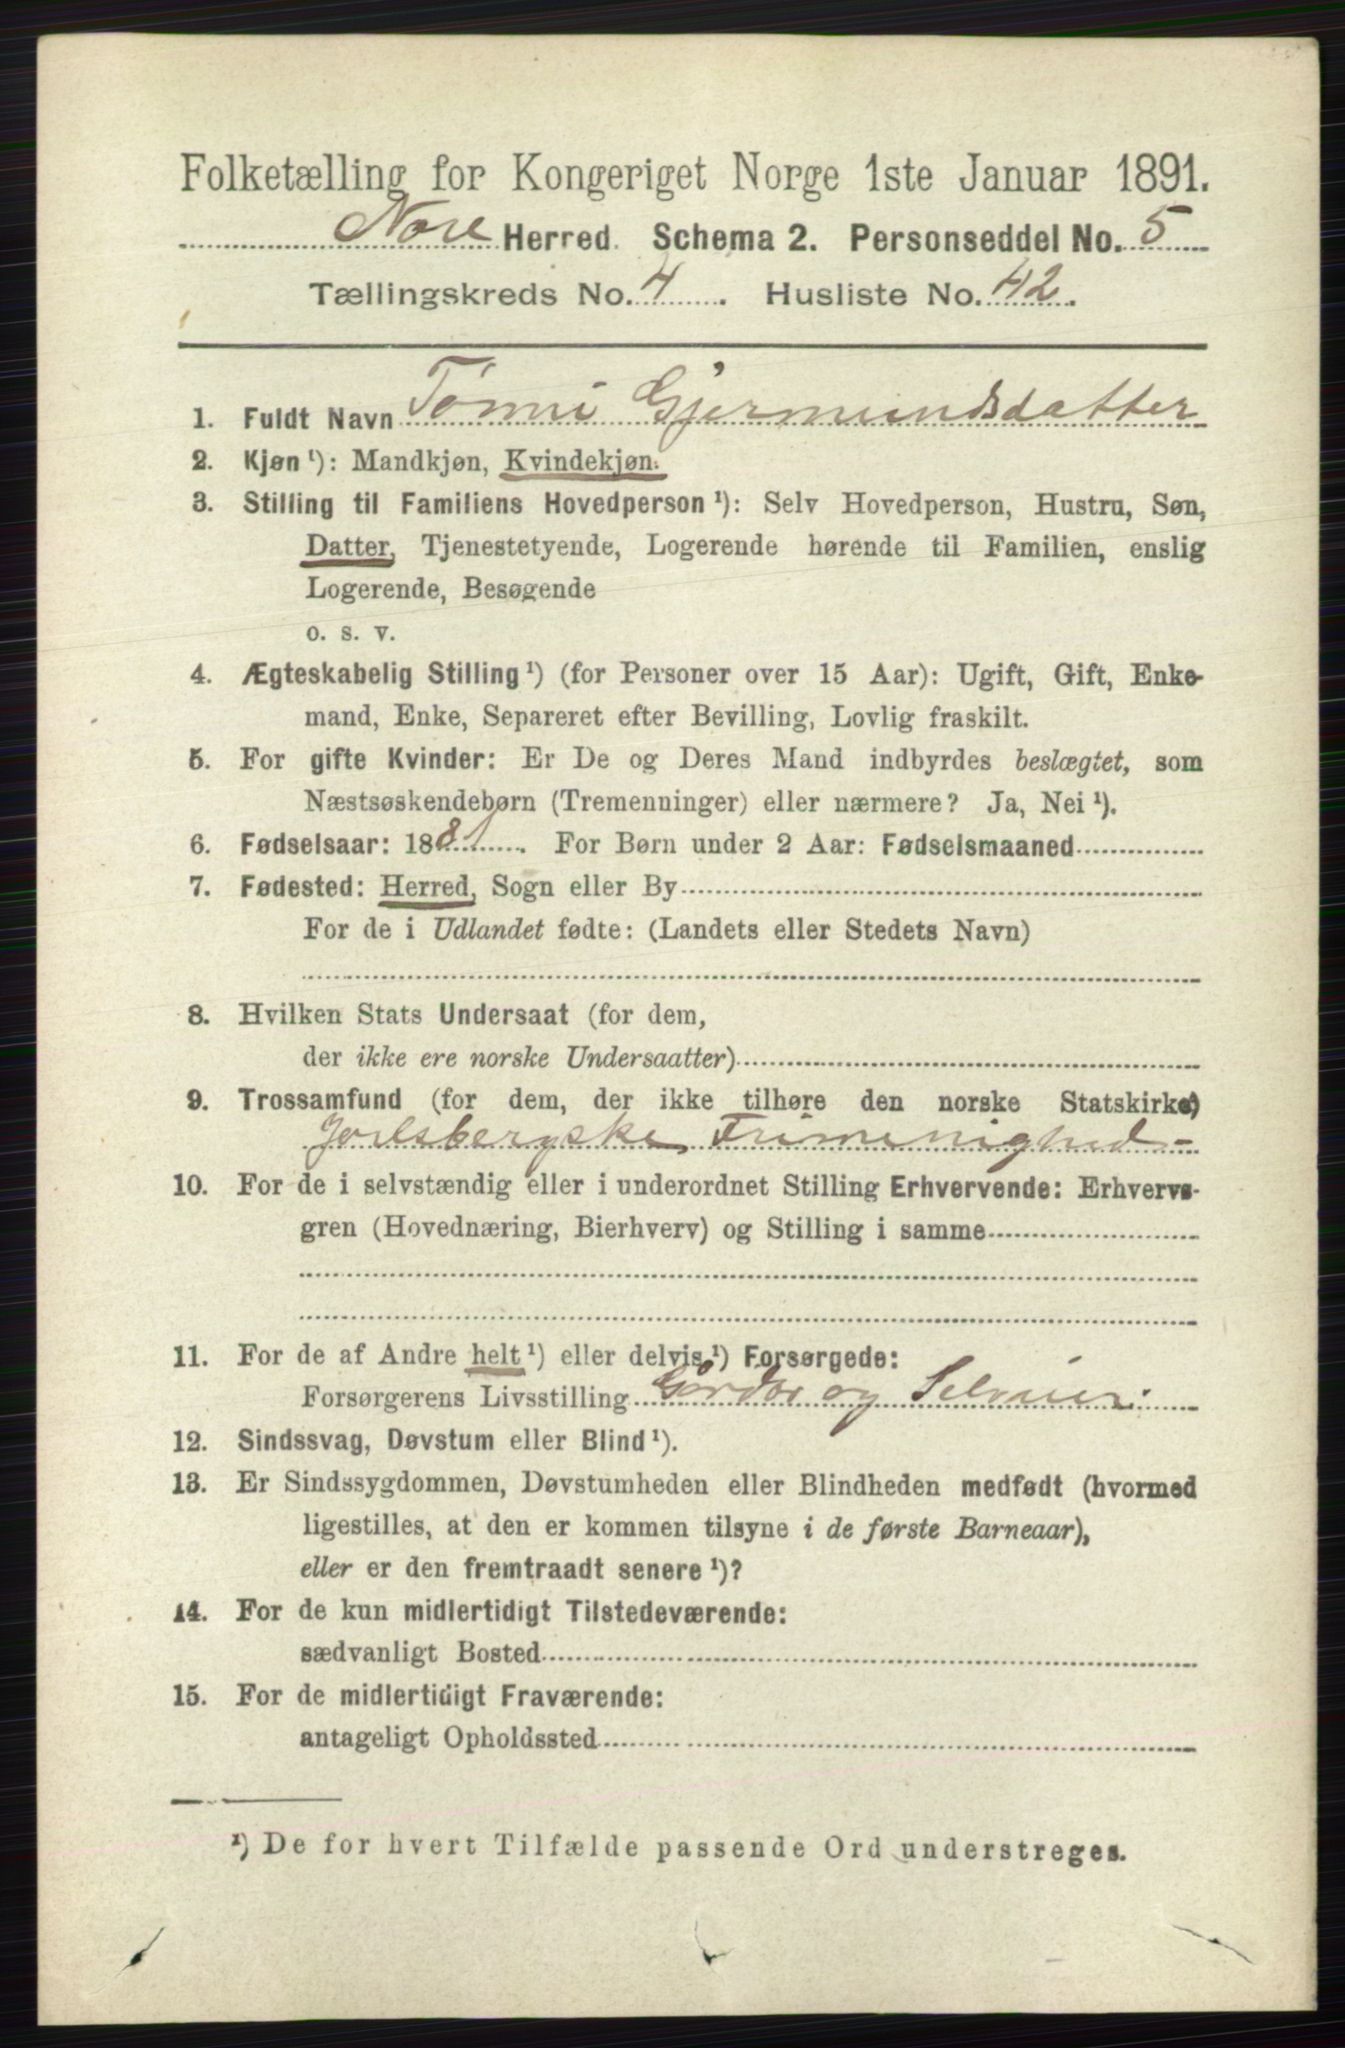 Folketælling for Kongeriget Norge 1ste Januar 1891.
Nore Herred. Schema 2. Personseddel No. 5
Tællingskreds No. 4. Husliste No. 42.
1. Fuldt Navn Tønni Gjermundsdatter
2. Kjøn ¹): Mandkjøn, Kvindekjøn.
3. Stilling til Familiens Hovedperson ¹): Selv Hovedperson, Hustru, Søn,
Datter, Tjenestetyende, Logerende hørende til Familien, enslig
Logerende, Besøgende
o. s. v.
4. Ægteskabelig Stilling ¹) (for Personer over 15 Aar): Ugift, Gift, Enke-
mand, Enke, Separeret efter Bevilling, Lovlig fraskilt.
5. For gifte Kvinder: Er De og Deres Mand indbyrdes beslægtet, som
Næstsøskendebørn (Tremenninger) eller nærmere? Ja, Nei ¹).
6. Fødselsaar: 1881. For Børn under 2 Aar: Fødselsmaaned
7. Fødested: Herred, Sogn eller By
For de i Udlandet fødte: (Landets eller Stedets Navn)
8. Hvilken Stats Undersaat (for dem,
der ikke ere norske Undersaatter)
9. Trossamfund (for dem, der ikke tilhøre den norske Statskirke)
Jarlsbergske Frimenighed-
10. For de i selvstændig eller i underordnet Stilling Erhvervende: Erhvervs-
gren (Hovednæring, Bierhverv) og Stilling i samme
11. For de af Andre helt ¹) eller delvis ¹) Forsørgede:
Forsørgerens Livsstilling Gårdbr og Selveier.
12. Sindssvag, Døvstum eller Blind ¹).
13. Er Sindssygdommen, Døvstumheden eller Blindheden medfødt (hvormed
ligestilles, at den er kommen tilsyne i de første Barneaar),
eller er den fremtraadt senere ¹)?
14. For de kun midlertidigt Tilstedeværende:
sædvanligt Bosted
15. For de midlertidigt Fraværende:
antageligt Opholdssted
¹) De for hvert Tilfælde passende Ord understreges.